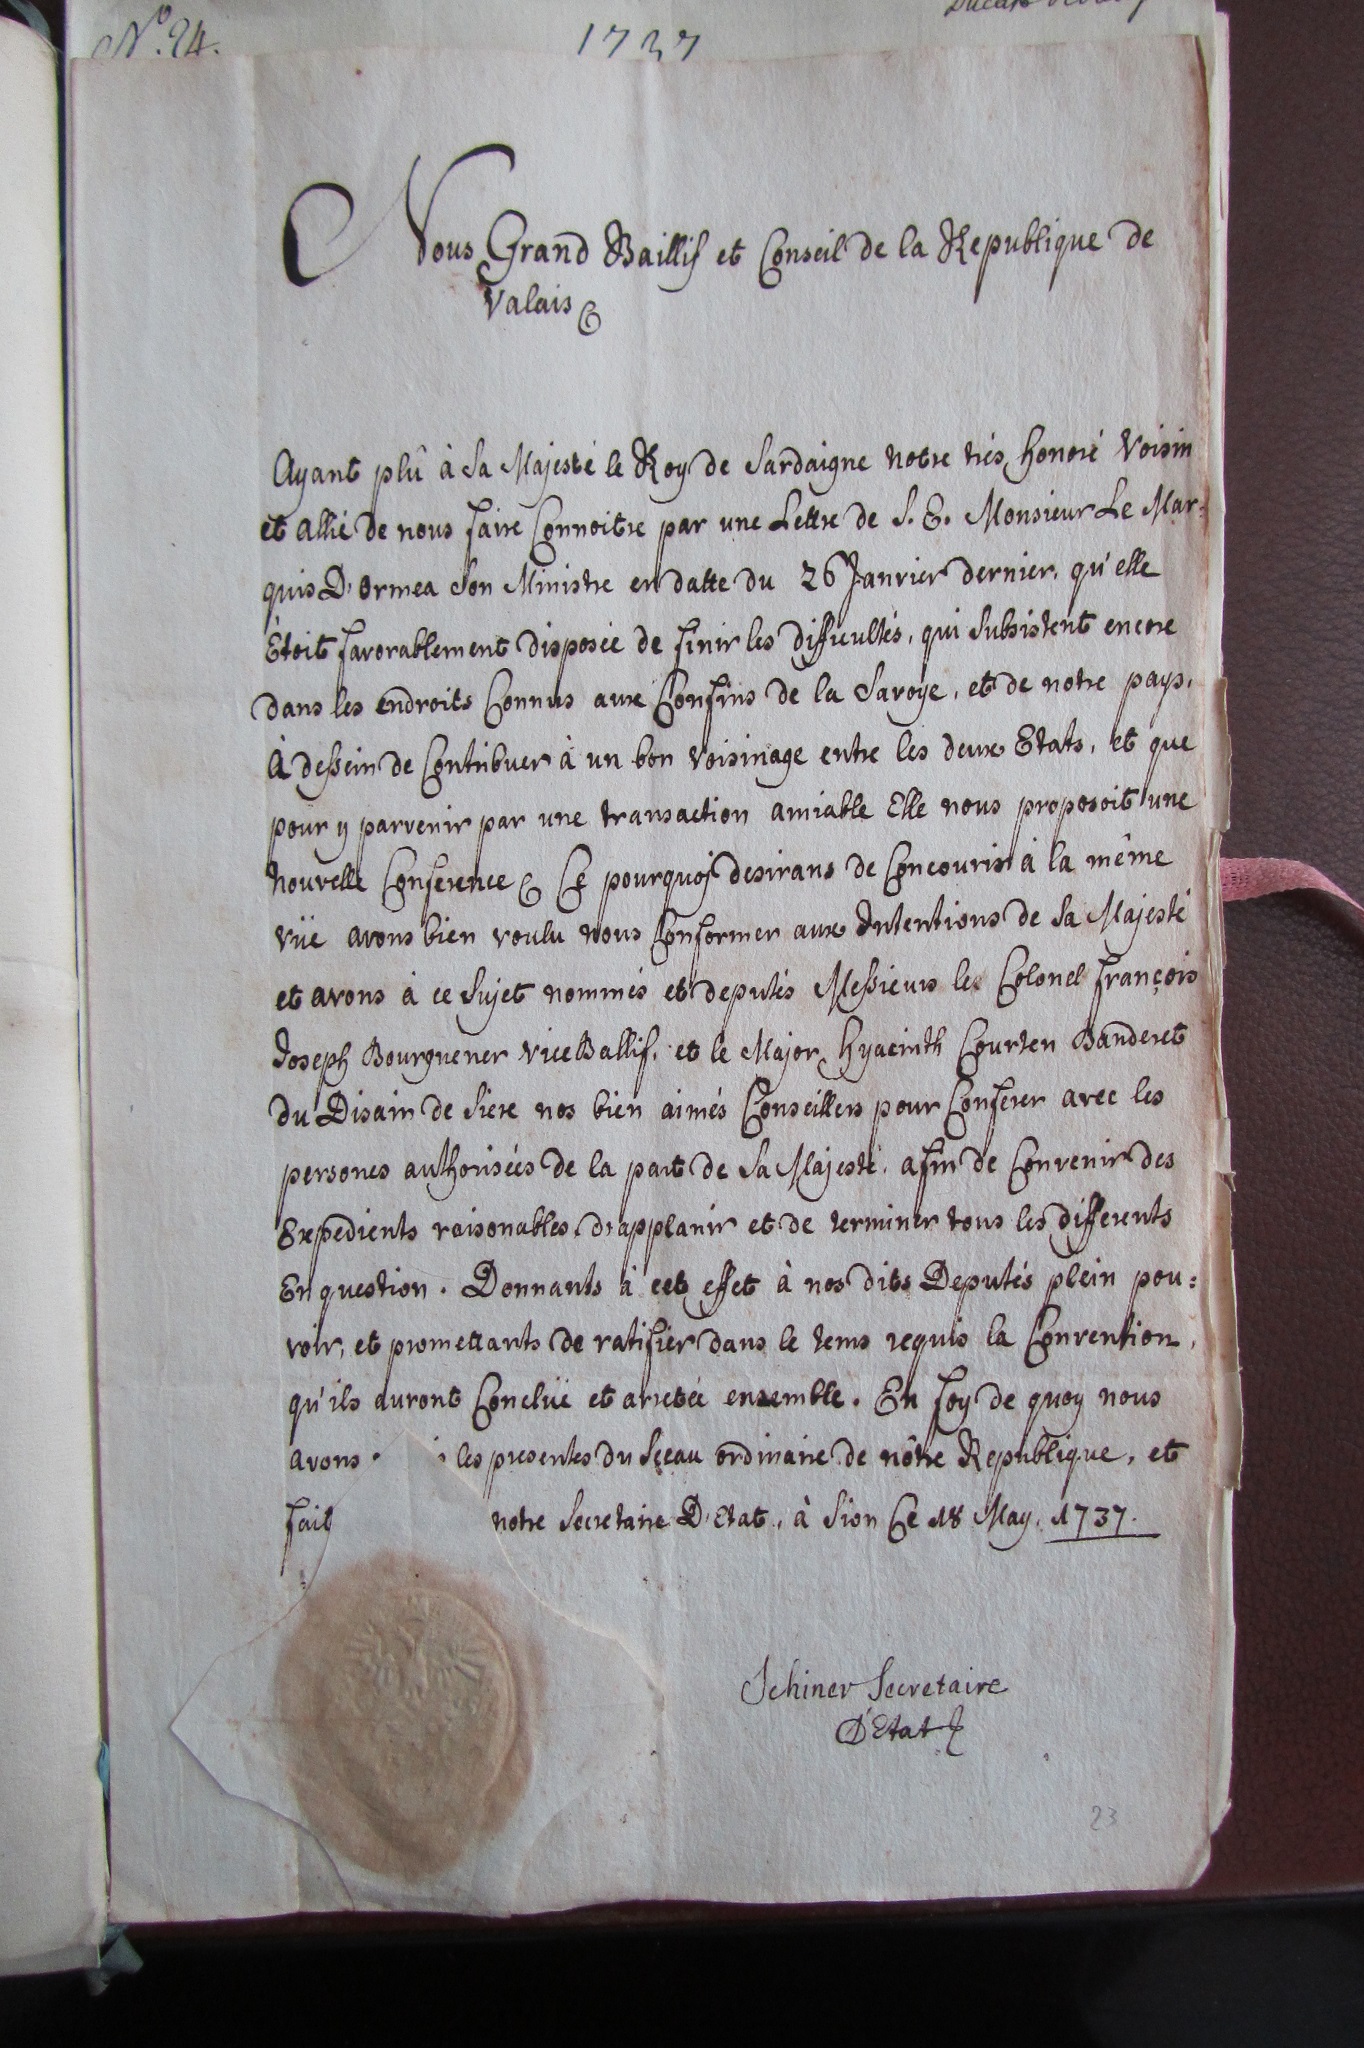 N.º 24.
1737
Nous Grand Baillif et Conseil de la Republique de
Valais
Ayant plû à Sa Majesté le Roy de Sardaigne notre trés honoré Voisin
et allié de nous faire Connoitre par une Lettre de S. E. Monsieur Le Mar=
quis D'Ormea Son Ministre en datte du 26 Janvier dernier, qu'elle
Étoit favorablement disposée de finir les difficultés, qui Subsistent encore
dans les endroits Connus aux Confins de la Savoye, et de notre pays,
à dessein de Contribuer à un bon voisinage entre les deux Etats, et que
pour y parvenir par une transaction amiable Elle nous proposoit une
nouvelle Conference Ce pourquoj desirans de Concourir à la même
vüe avons bien voulu nous Conformer aux Intentions de Sa Majesté
et avons à ce Sujet nommés et deputés Messieurs le Colonel François
Joseph Bourguener Vice Ballif, et le Major Hyacinth Courten Banderet
du Disain de Siere nos bien aimés Conseillers pour Conferer avec les
persones authorisées de la part de Sa Majesté, afin de Convenir des
Expedients raisonables, d'applanir et de terminer tous les differents
En question. Donnants à cet effet à nos dits Deputés plein pou=
voir, et promettants de ratifier dans le tems requis la Convention,
qu'ils auront Conclüe et arretée ensemble. En foy de quoy nous
avons les presentes du Sçeau ordinaire de nôtre Republique, et
fait notre Secretaire D'Etat, à Sion Ce 18 May, 1737.
Schiner Secretaire
D'Etat
23